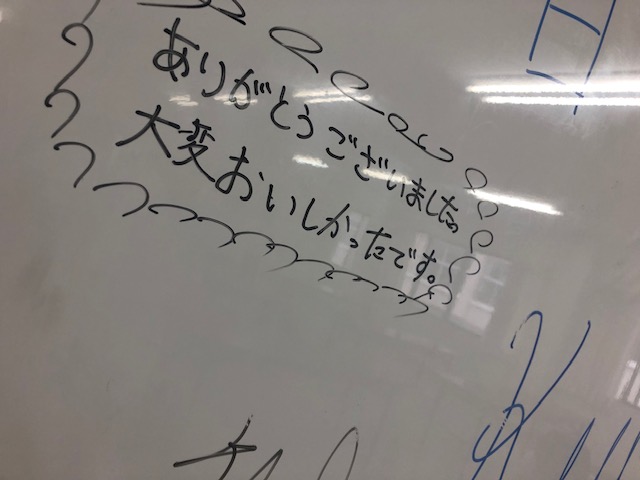 ありがとうございました。
大変おいしかったです。